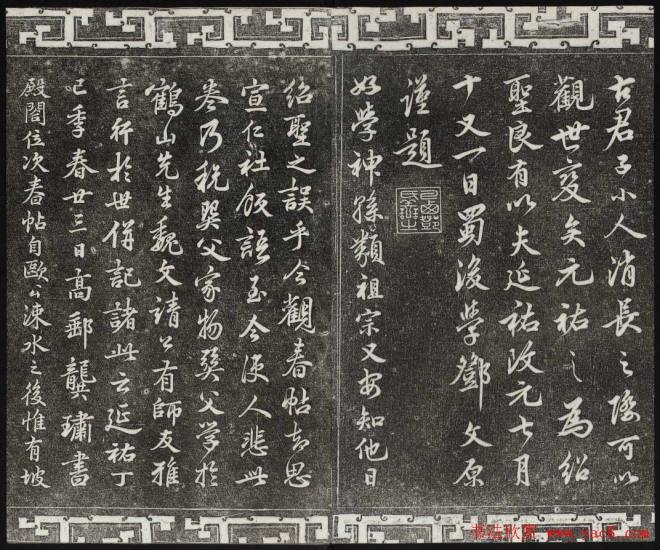 古君子小人消长之際可以
觀世变矣元祐之為紹
聖良有以夫延祐改元七月
十又一日蜀後學鄧文原
謹題
好學神孫類祖宗又安知他日
紹聖之誤乎今觀春帖
宣仁社飯語至今使人悲此
卷乃税巽父家物巽父学於
鶴山先生魏文靖公有師友雅
言行於世併記諸此云延祐丁
巳季春廿三日高郵龔璛書
殿閣位次春帖自歐公涑水之後惟有坡
书法欣赏 www.yac8.com